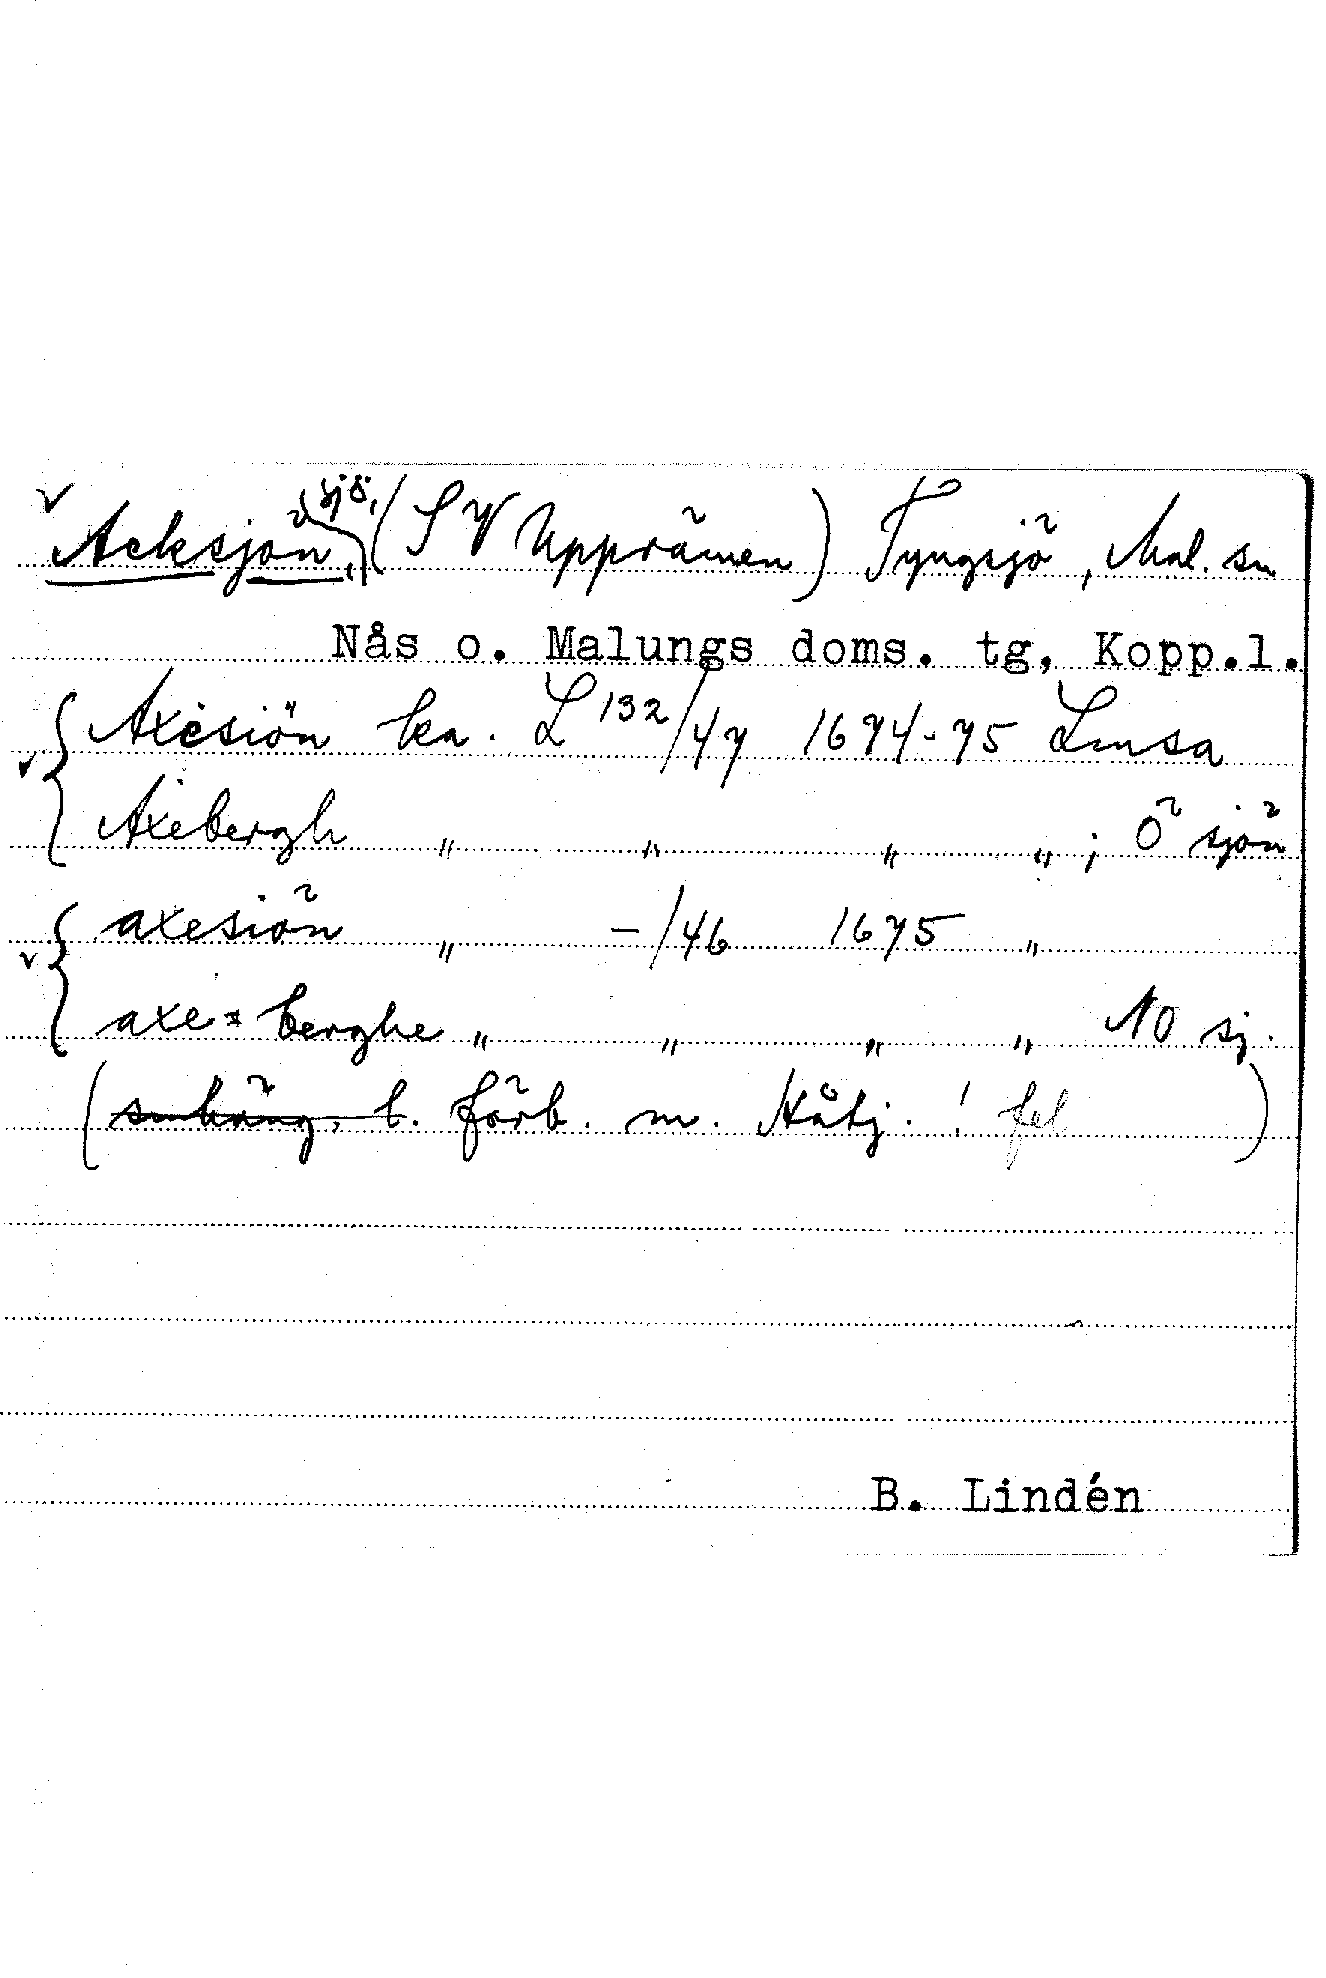 Acksjön, sjö, (SV Upprämen) Tyngsjö, Mal. sn
Nås o. Malungs doms. tg, Kopp.l.
Axesiön ka. L 132/47 1674-75 Lmsa
Axebergh " " " " ; Ö sjön
axesiön " -/46 1675 "
axe=berghe " " " " NO sj.
(smhäng. b. förb. m. Håtj. ! fel )
B. Lindén